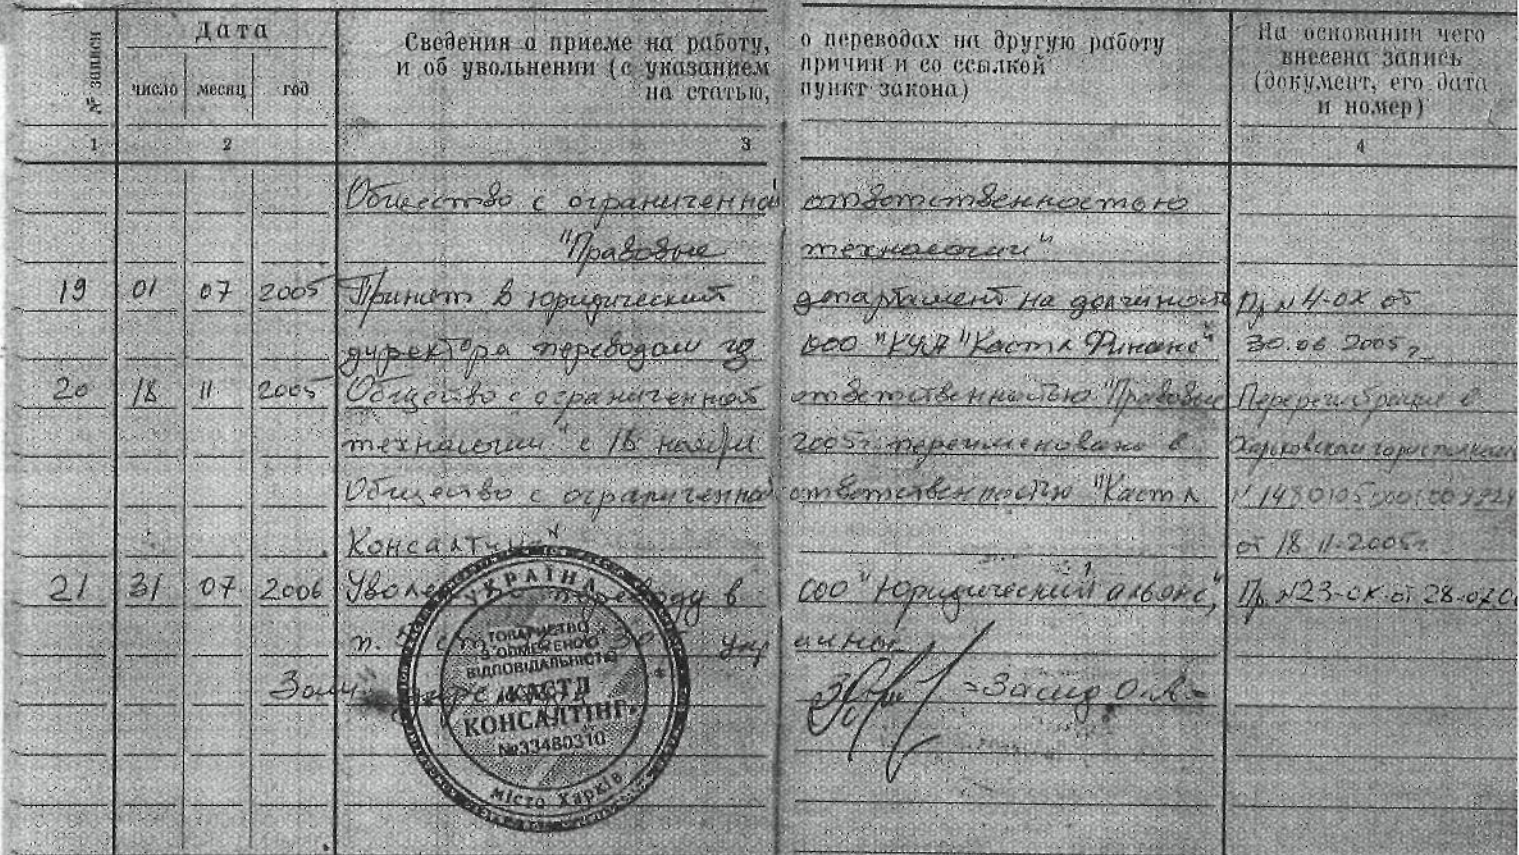 № записи
Дата
число месяц год
Сведения о приеме на работу, о переводах на другую работу
и об увольнении (с указанием причин и со ссылкой
на статью, пункт закона)
На основании чего
внесена запись
(документ, его дата
и номер)
1 2 3 4
Общество с ограниченной ответственностью
"Правовые технологии"
19 01 07 2005 Принят в юридический департамент на должность Пр. №4-ОК от
директора переводом из ООО "КУА "Кастл Финанс" 30.06.2005г.
20 18 11 2005 Общество с ограниченной ответственностью "Правовые Перерегистрация в
технологии" с 18 ноября 2005г. переименовано в Харьковском
Общество с ограниченной ответственностью "Кастл
Консалтинг" от 18.11.2005г.
21 31 07 2006 Уволен переводу в ООО "Юридический альянс", Пр. №23-ОК от 28.07.0
п. 5 ст. украины
УКРАЇНА
ТОВАРИСТВО
З ОБМЕЖЕНОЮ
ВІДПОВІДАЛЬНІСТЮ
"КАСТЛ
КОНСАЛТІНГ"
№33480310
місто Харків